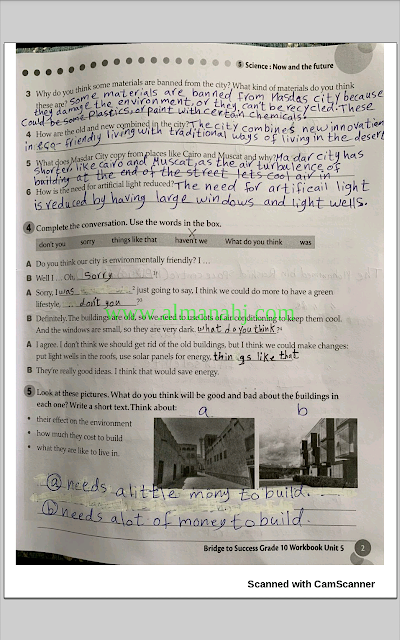 5 Science : Now and the future
3 Why do you think some materials are banned from the city? What kind of materials do you think
these are? Some materials are banned from Masdas city because
they damage the environment, or they can't be recycled. These
Could be some Plastics, or paint with certain chemicals.
4 How are the old and new combined in the city? The city combines new innovation
in eco-friendly living with traditional ways of living in the desert
5 What does Masdar City copy from places like Cairo and Muscat and why? Masdar city has
shorter, like cairo and Muscat, as the air turbulence of
building at the end of the street lets cool air in
6 How is the need for artificial light reduced? The need for artificail light
is reduced by having large windows and light wells.
4 Complete the conversation. Use the words in the box.
don't you sorry things like that haven't we What do you think was
A Do you think our city is environmentally friendly? I ...
B Well I .. Oh, sorry
A Sorry, I was 2 just going to say, I think we could do more to have a green
lifestyle, ... don't you ?
B Definitely. The buildings are old, so we need to use lots of air conditioning to keep them cool.
And the windows are small, so they are very dark. what do you think?
A I agree. I don't think we should get rid of the old buildings, but I think we could make changes:
put light wells in the roofs, use solar panels for energy, things like that
B They're really good ideas. I think that would save energy.
www.almanahj.com
5 Look at these pictures. What do you think will be good and bad about the buildings in
each one? Write a short text. Think about:
a b
• their effect on the environment
• how much they cost to build
• what they are like to live in.
ⓐ needs a little mony to build.
ⓑ needs alot of money to build.
Bridge to Success Grade 10 Workbook Unit 5 2
Scanned with CamScanner